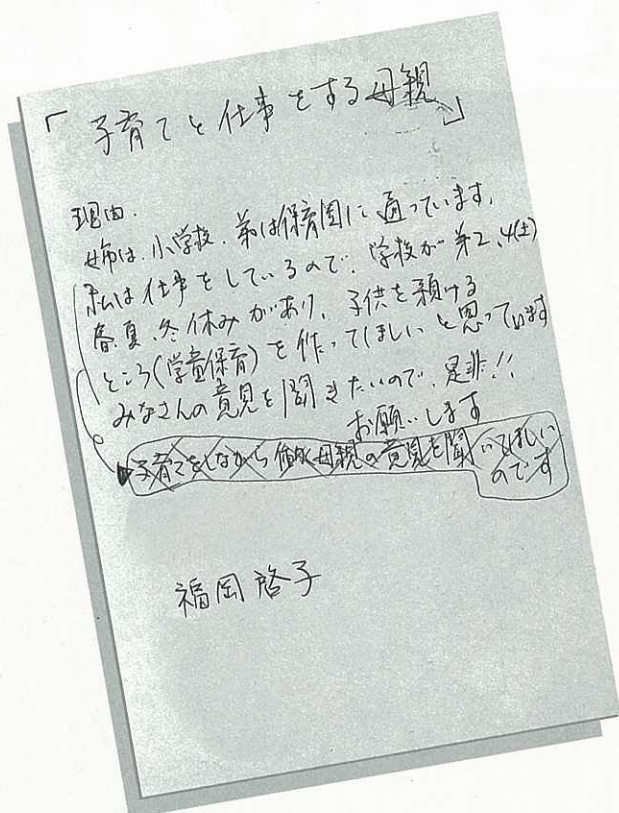 「子育てと仕事をする母親」
理由.
姉は、小学校、弟は保育園に通っています、
私は仕事をしているので、学校が第2、4(土)
春、夏、冬休みがあり、子供を預ける
ところ(学童保育)を作ってほしいと思っています
みなさんの意見を聞きたいので、是非!!
お願いします
子育てをしながら働く母親の意見を聞いてほしい
のです
福岡啓子